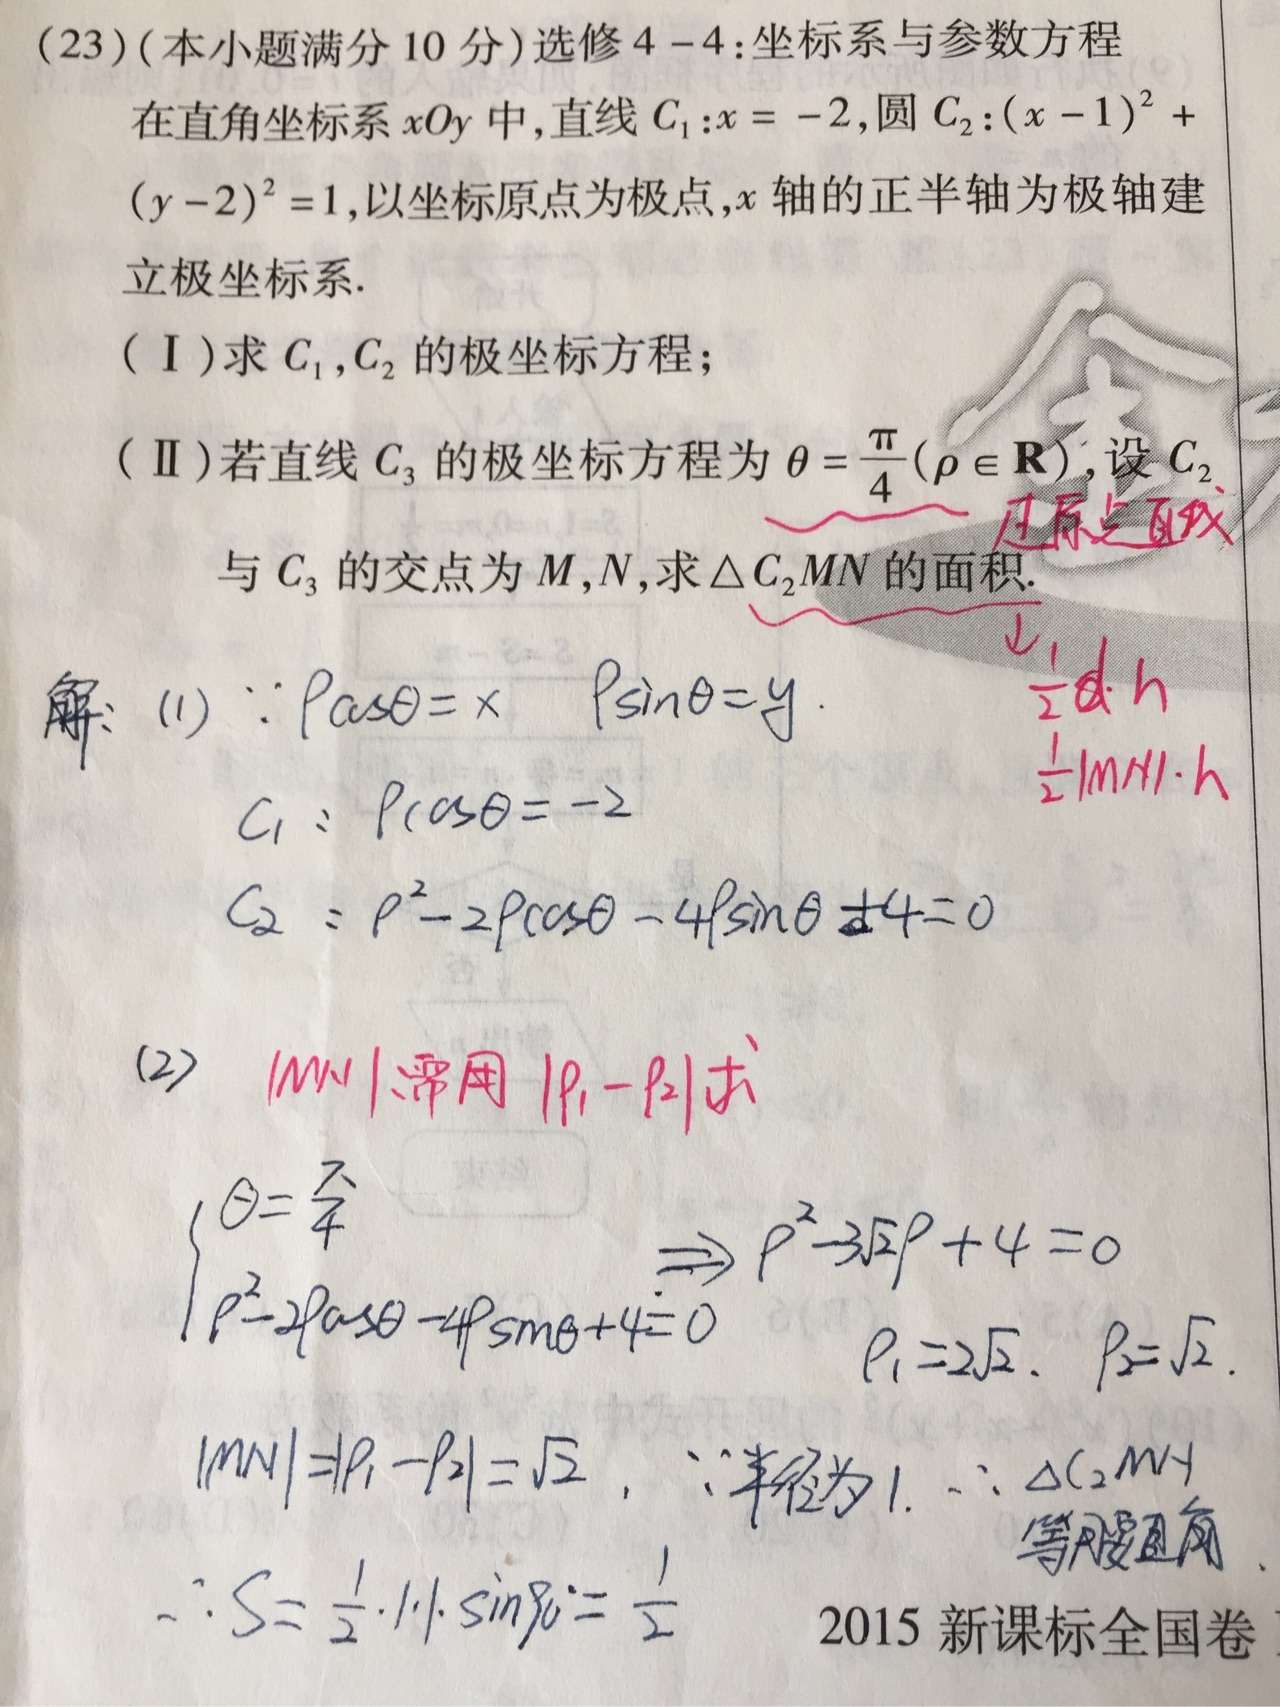 (23)(本小题满分 10 分)选修 4-4:坐标系与参数方程
在直角坐标系 xOy 中,直线 C₁:x = -2,圆 C₂:(x-1)² +
(y-2)² =1,以坐标原点为极点,x 轴的正半轴为极轴建
立极坐标系.
(Ⅰ)求 C₁,C₂ 的极坐标方程;
(Ⅱ)若直线 C₃ 的极坐标方程为 θ = π/4 (ρ∈R),设 C₂
过原点直线
与 C₃ 的交点为 M,N,求△C₂MN 的面积.
↓
1/2 d·h
1/2 |MN|·h
解: (1) ∵ ρcosθ = x ρsinθ = y.
C₁: ρcosθ = -2
C₂: ρ² - 2ρcosθ - 4ρsinθ + 4 = 0
(2) |MN|常用 |ρ₁-ρ₂| 求
{ θ = π/4
ρ² - 2ρcosθ - 4ρsinθ + 4 = 0 ⇒ ρ² - 3√2ρ + 4 = 0
ρ₁ = 2√2. ρ₂ = √2.
|MN| = |ρ₁ - ρ₂| = √2, ∵半径为1. ∴ △C₂MN
等腰直角.
∴ S = 1/2 ·1·1· sin90° = 1/2
2015 新课标全国卷